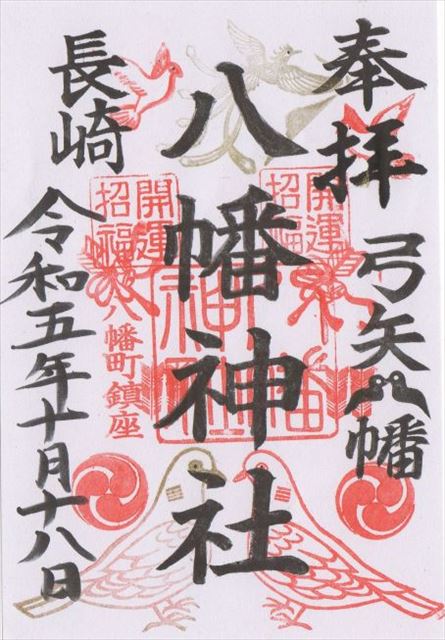 奉拝
弓矢八幡
八幡神社
開運
招福
開運
招福
八幡町鎮座
長崎
令和五年十月十八日